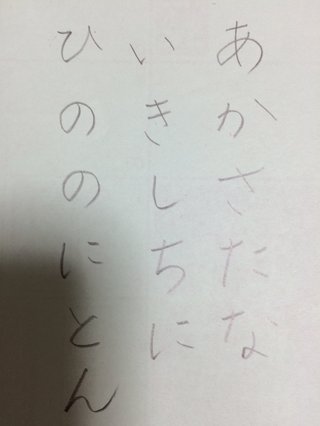 あかさたな
いきしちに
ひののにとん